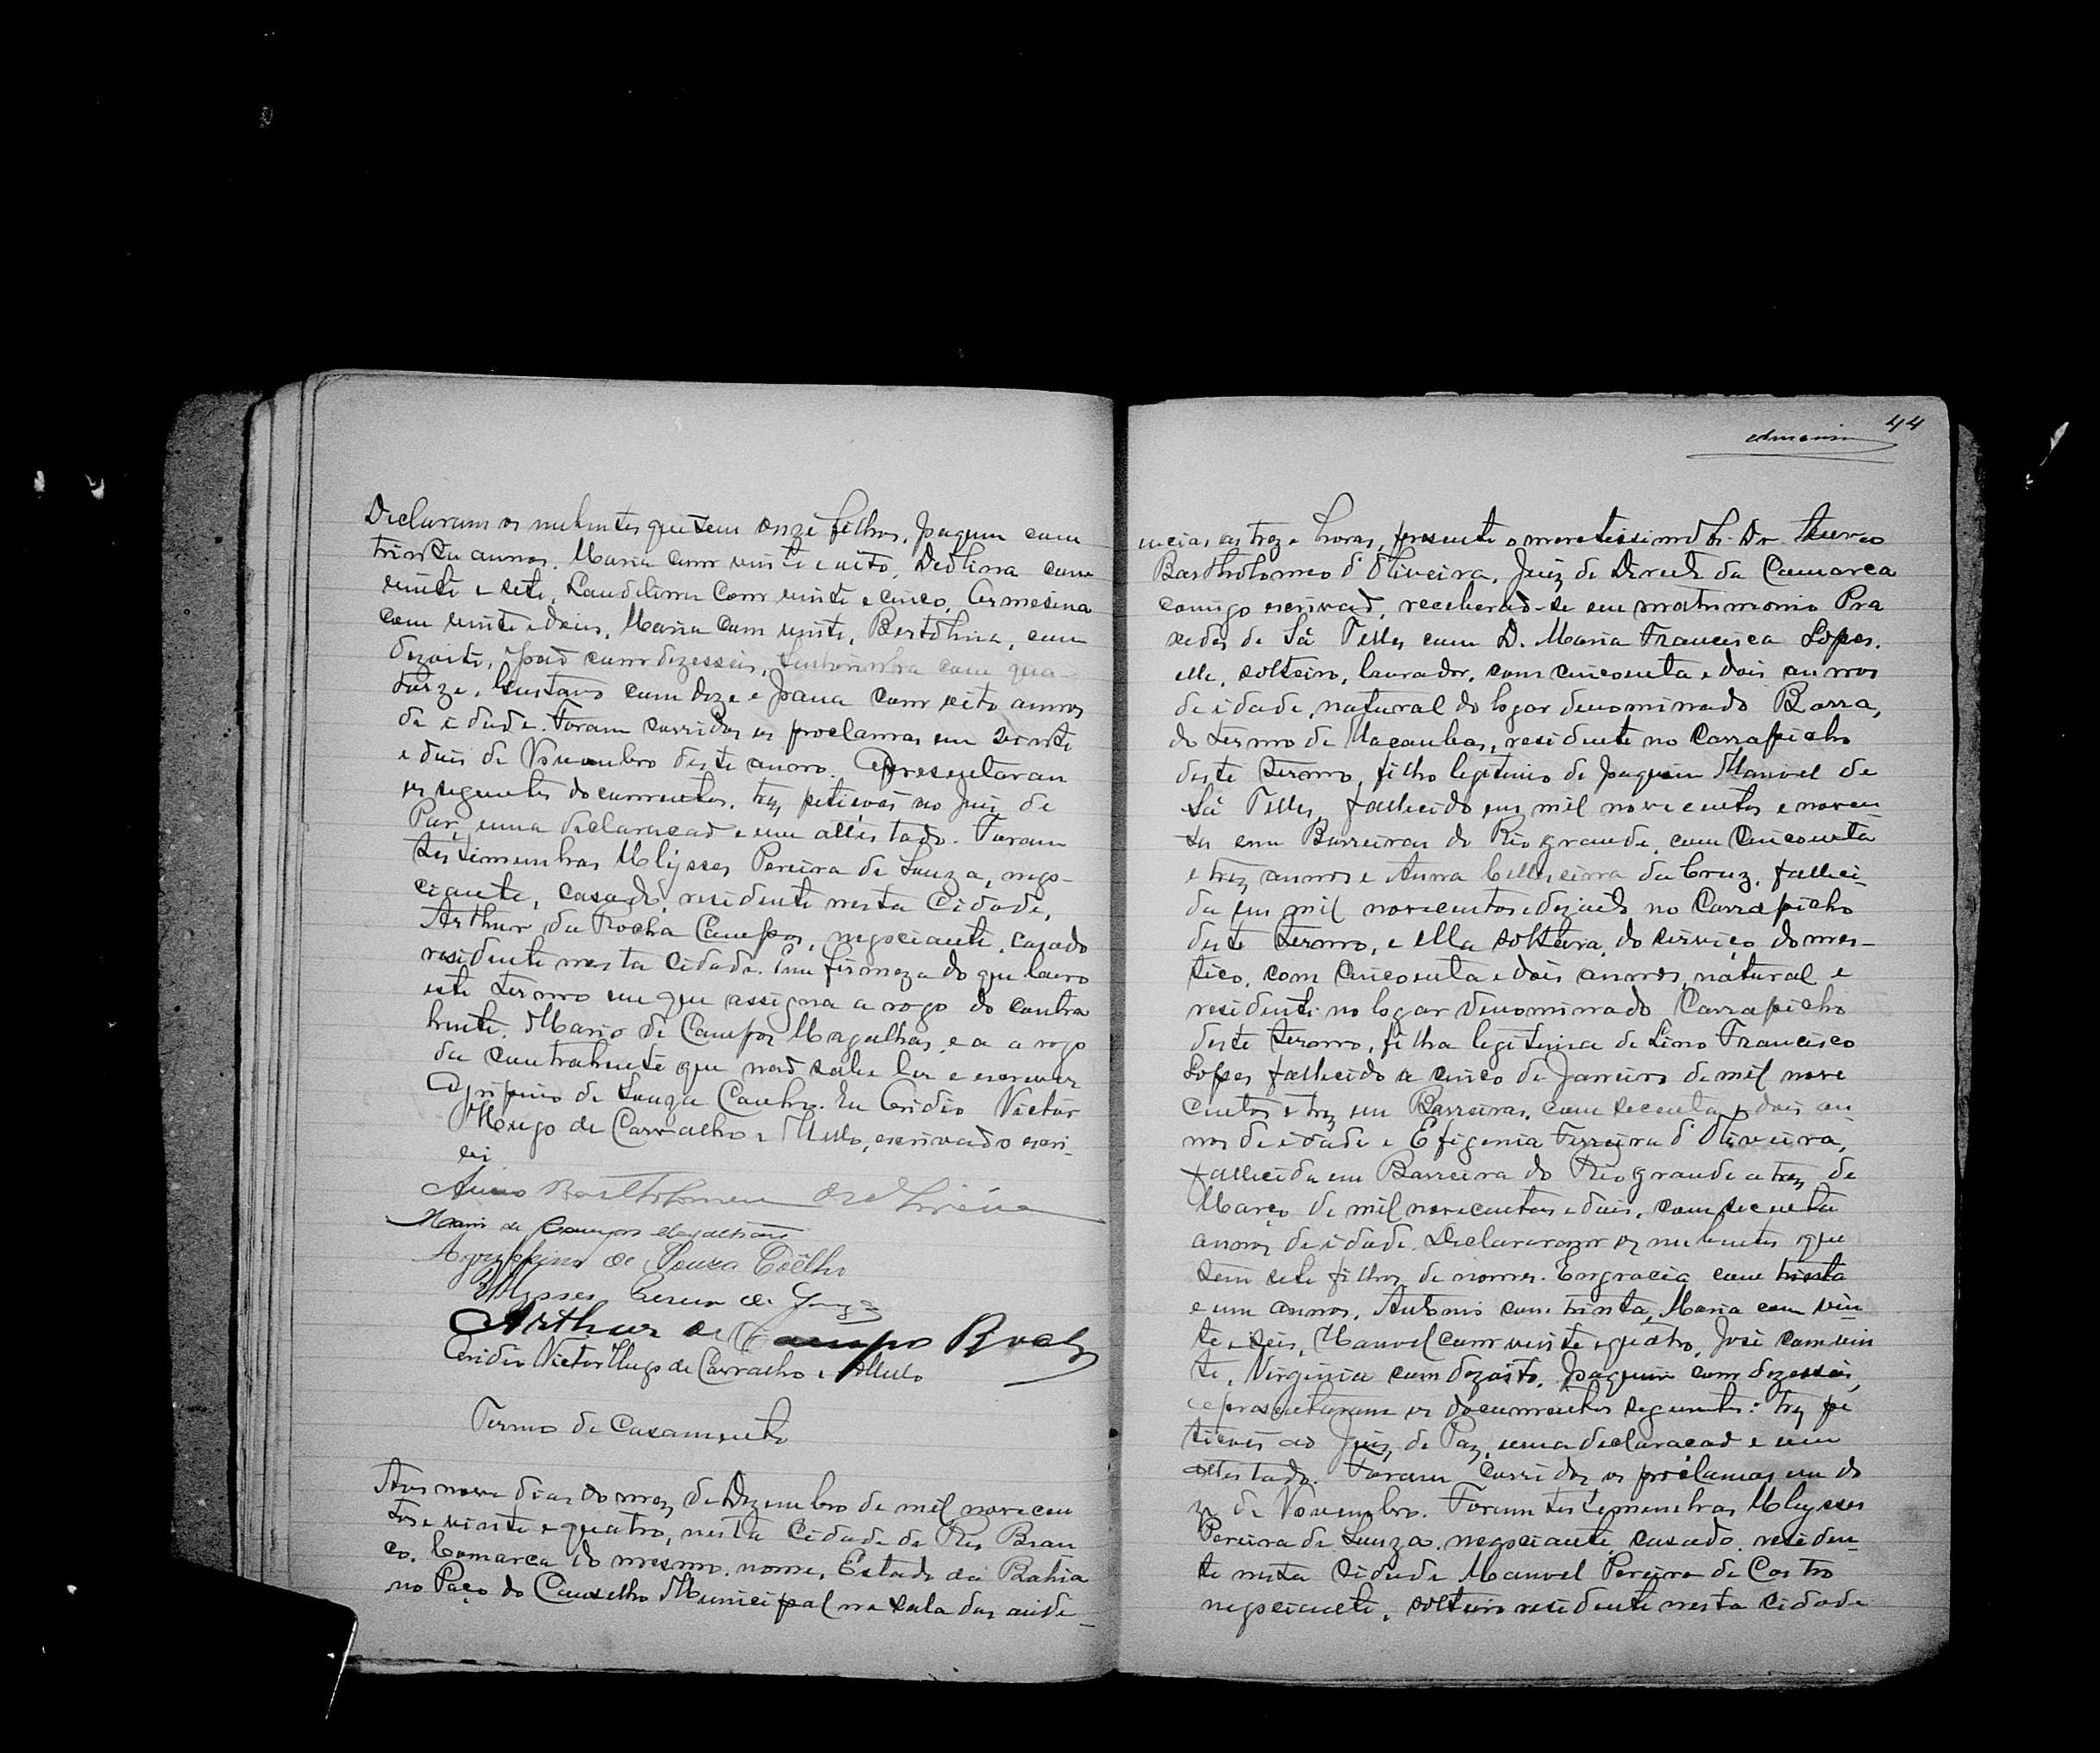 Declaram os nubentes que tem onze filhos, Joaquim com
trinta annos. Maria com vinte e oito, Deolina com
vinte e sete, Laudelina com vinte e cinco, Ermesina
com vinte e dois, Maria com vinte, Bertolina, com
dezoito, João com dezesseis, com qua-
torze, Gustavo com doze e Joana com oito annos
de idade. Foram corridos os proclamas em vinte
e dois de Novembro deste anno. Apresentaram
os seguentes documentos, tres petições ao Juiz de
Paz, uma declaracaò e um attestado. Foram
testimunhas Ulysses Pereira de Souza, nego-
ciante, casado, residente nesta Cidade,
Arthur da Rocha Campos, negociante, casado
residente nesta cidade. Em firmeza do que lavro
este termo em que assigna a rogo do contra
hente. Mario de Campos Magalhas, e a a rogo
da contrahente que naò sabe ler e escrever
Agripino de Souza Coelho. Eu Ceridio Victor
Hugo de Carvalho e Mello, escrivaò o escri-
vi
Aureo Bartholomeu de Oliveira
Mario de Campos Magalhães
Agrippino de Souza Coêlho
Ulysses Pereira de Souza
Arthur de Campo Rocha
Ceridio Victor Hugo de Carvalho e Mello
Termo de Casamento
Aos nove dias do mez de Dezembro de mil novecen
tos e vinte e quatro, nesta Cidade de Rio Bran
co, Comarca do mesmo nome, Estado da Bahia
no Paço do Conselho Municipal na sala das audi-
44
encias as treze horas, presente o meretissimo Sr. Dr. Aureo
Bartholomeo d'Oliveira, Juiz de Direito da Comarca
comigo escrivaò, receberaò-se em matrimonio Pra
xedes de Sá Telles com D. Maria Francisca Lopes.
elle, solteiro, lavrador, com cincoenta e dois annos
de idade, natural do logar denominado Barra,
do termo de Macaubas, residente no Carrapicho
deste termo, filho legitimo de Joaquim Manoel de
Sá Telles, fallecido em mil novecentos e noven-
ta em Barreiras do Rio grande, com cincoenta
e tres annos e Anna da Cruz, falleci-
da em mil novecentos e dezoito no Carrapicho
deste termo, e ella solteira, do serviço domes-
tico, com cincoenta e dois annos, natural e
residente no logar denominado Carrapicho
deste termo, filha legitima de Lino Francisco
Lopes fallecido a cinco de Janeiro de mil nove
centos e tres em Barreiras, com secenta e dois an
nos de idade e Efigenia Ferreira d'Oliveira,
fallecida em Barreira do Rio grande a tres de
Março de mil novecentos e dois, com secenta
annos de idade. Declararam os nubentes que
tem sete filhos de nomes. Engracia com trinta
e um annos, Antonio com trinta, Maria com vin-
te e seis, Manoel com vinte e quatro, José com vin
te, Virginia com dezoito, Joaquim com dezesseis,
apresentaram os documentos seguentes: tres pe
tições ao Juiz de Paz, uma declaracaò e um
attestado. Foram corridos os proclamas em do
ze de Novembro. Foram testemunhas Ulysses
Pereira de Souza, negociante, casado, residen-
te nesta cidade Manoel Pereira de Castro
negociante, solteiro residente nesta cidade